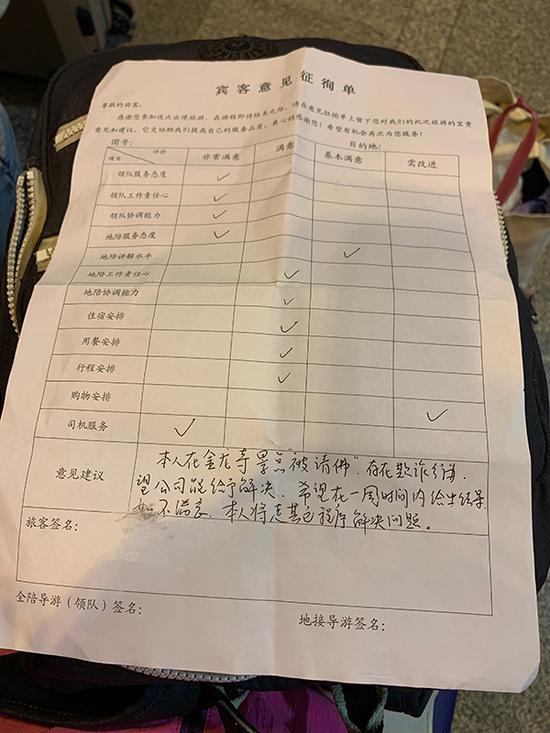 宾客意见征徇单
尊敬的游客:
感谢您参加这次出境旅游,在游程即将结束之际,请在意见征徇单上留下您对我们的此次旅游的宝贵
意见和建议,它交协助我们提高自己的服务品质,衷心的感谢您!希望有机会再次为您服务!
团号: 目的地:
项目 评价 非常满意 满意 基本满意 需改进
领队服务态度 ✓
领队工作责任心 ✓
领队协调能力 ✓
地陪服务态度 ✓
地陪讲解水平 ✓
地陪工作责任心 ✓
地陪协调能力 ✓
住宿安排 ✓
用餐安排 ✓
行程安排 ✓
购物安排 ✓
司机服务 ✓
意见建议
本人在金龙寺景点"被请佛",存在欺诈行为,
望公司能给予解决。希望在一周时间内给出结果
如不满意,本人将走其它程序解决问题。
旅客签名:
全陪导游(领队)签名:
地接导游签名: